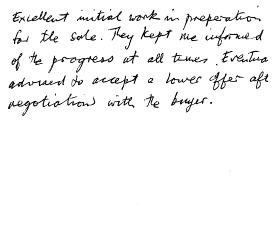 Excellent initial work in preparation
for the sale. They kept me informed
of the progress at all times. Eventua
advised to accept a lower offer aft
negotiations with the buyer.